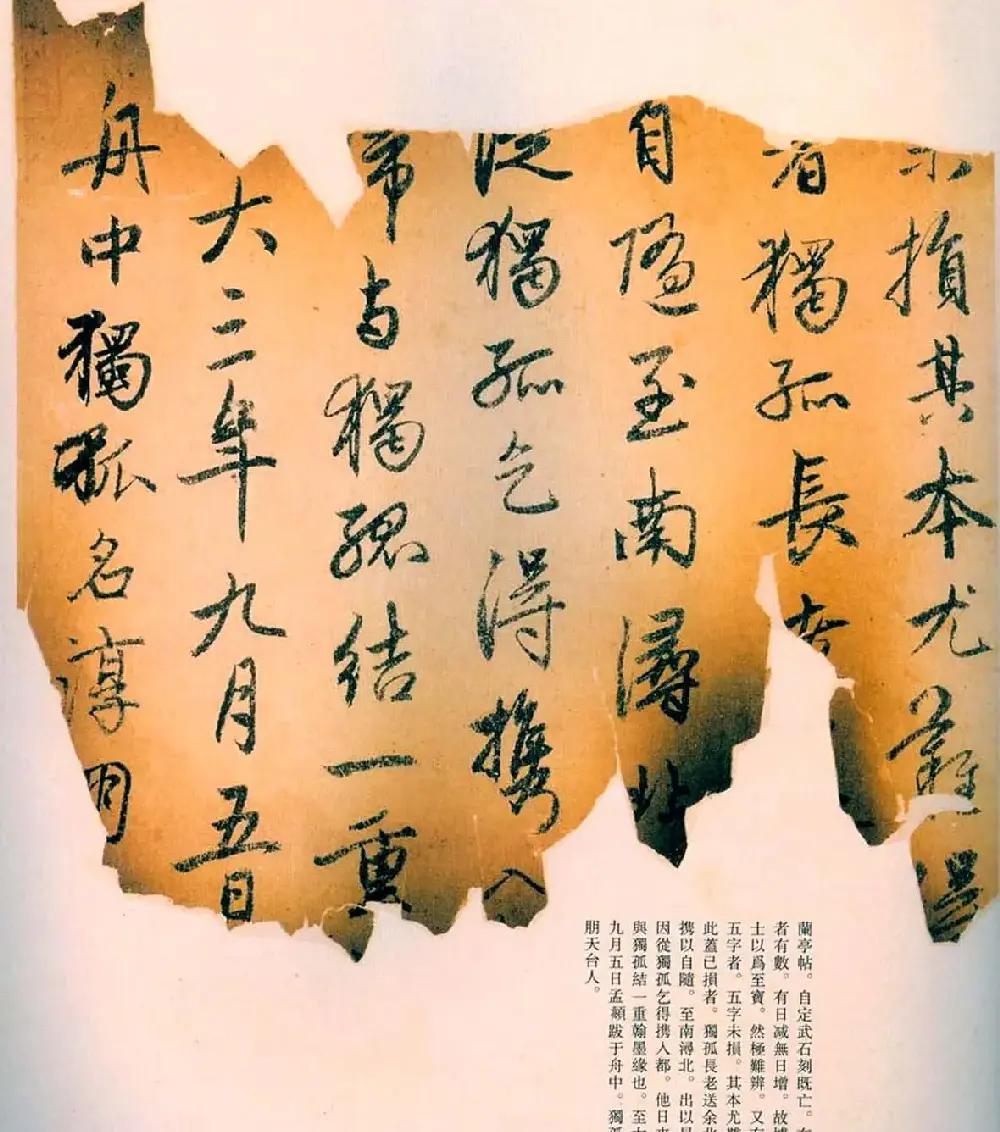 未損其本尤難得
者獨孤長老
自隨至南潯北
從獨孤乞得携入
帋与獨孤結一重
大三年九月五日
舟中獨孤名淳朋
蘭亭帖。自定武石刻既亡。在
者有數。有日減無日增。故博
士以爲至寶。然極難辨。又有
五字者。五字未損。其本尤難
此蓋已損者。獨孤長老送余北
携以自隨。至南潯北。出以見
因從獨孤乞得携入都。他日來
與獨孤結一重翰墨緣也。至大
九月五日孟頫跋于舟中。獨孤
朋天台人。